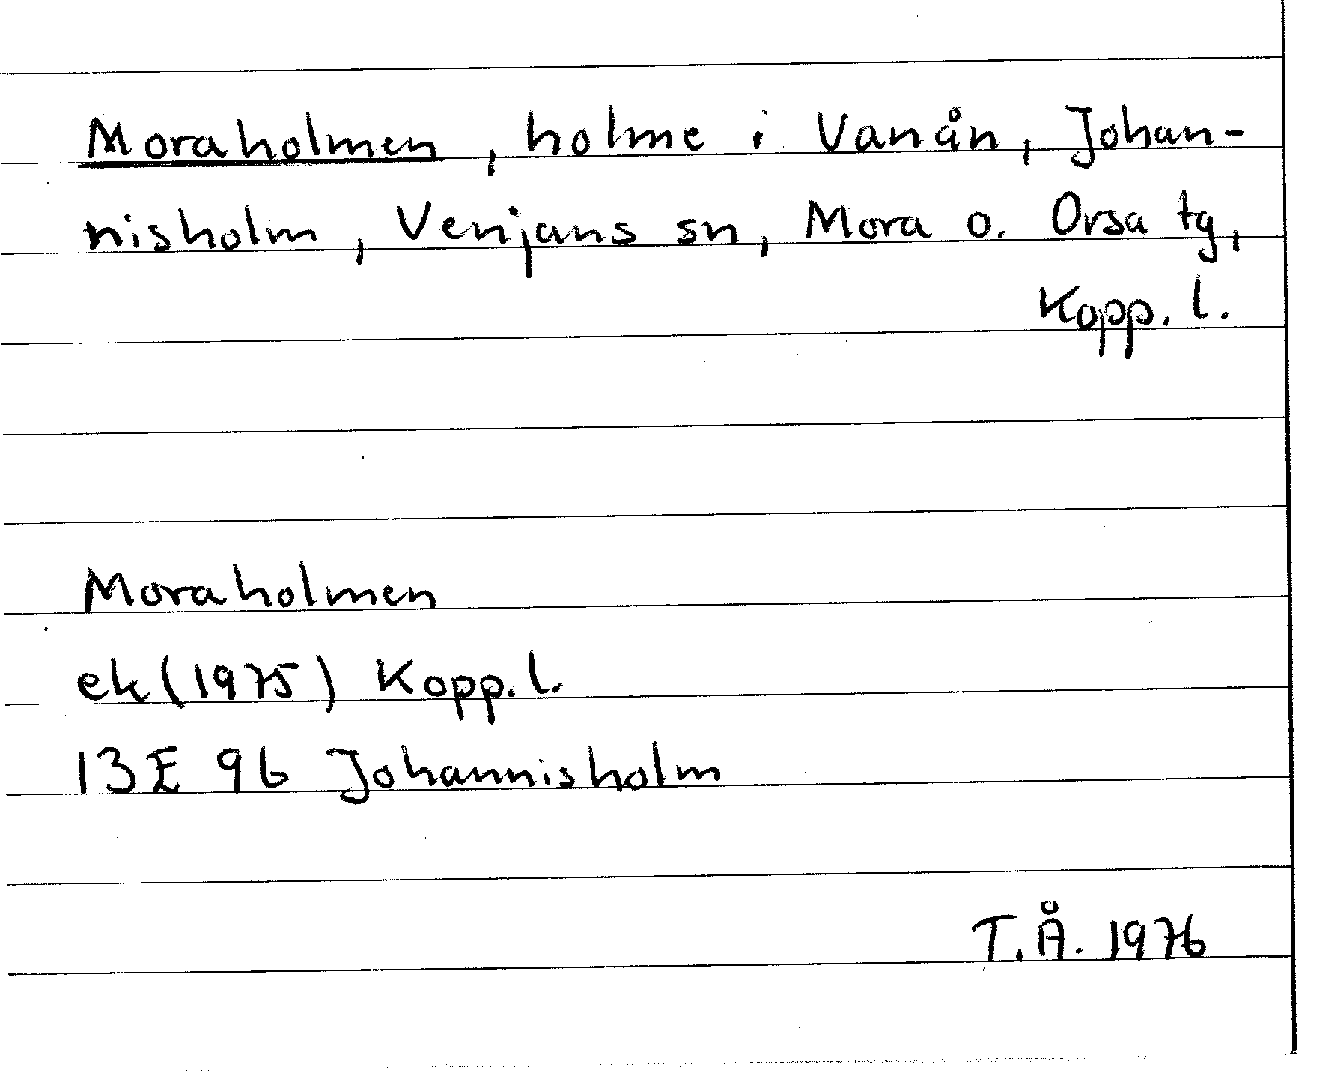 Moraholmen, holme i Vanån, Johan-
nisholm, Venjans sn, Mora o. Orsa tg,
Kopp. l.
Moraholmen
ek (1975) Kopp. l.
13E 9b Johannisholm
T.Å. 1976